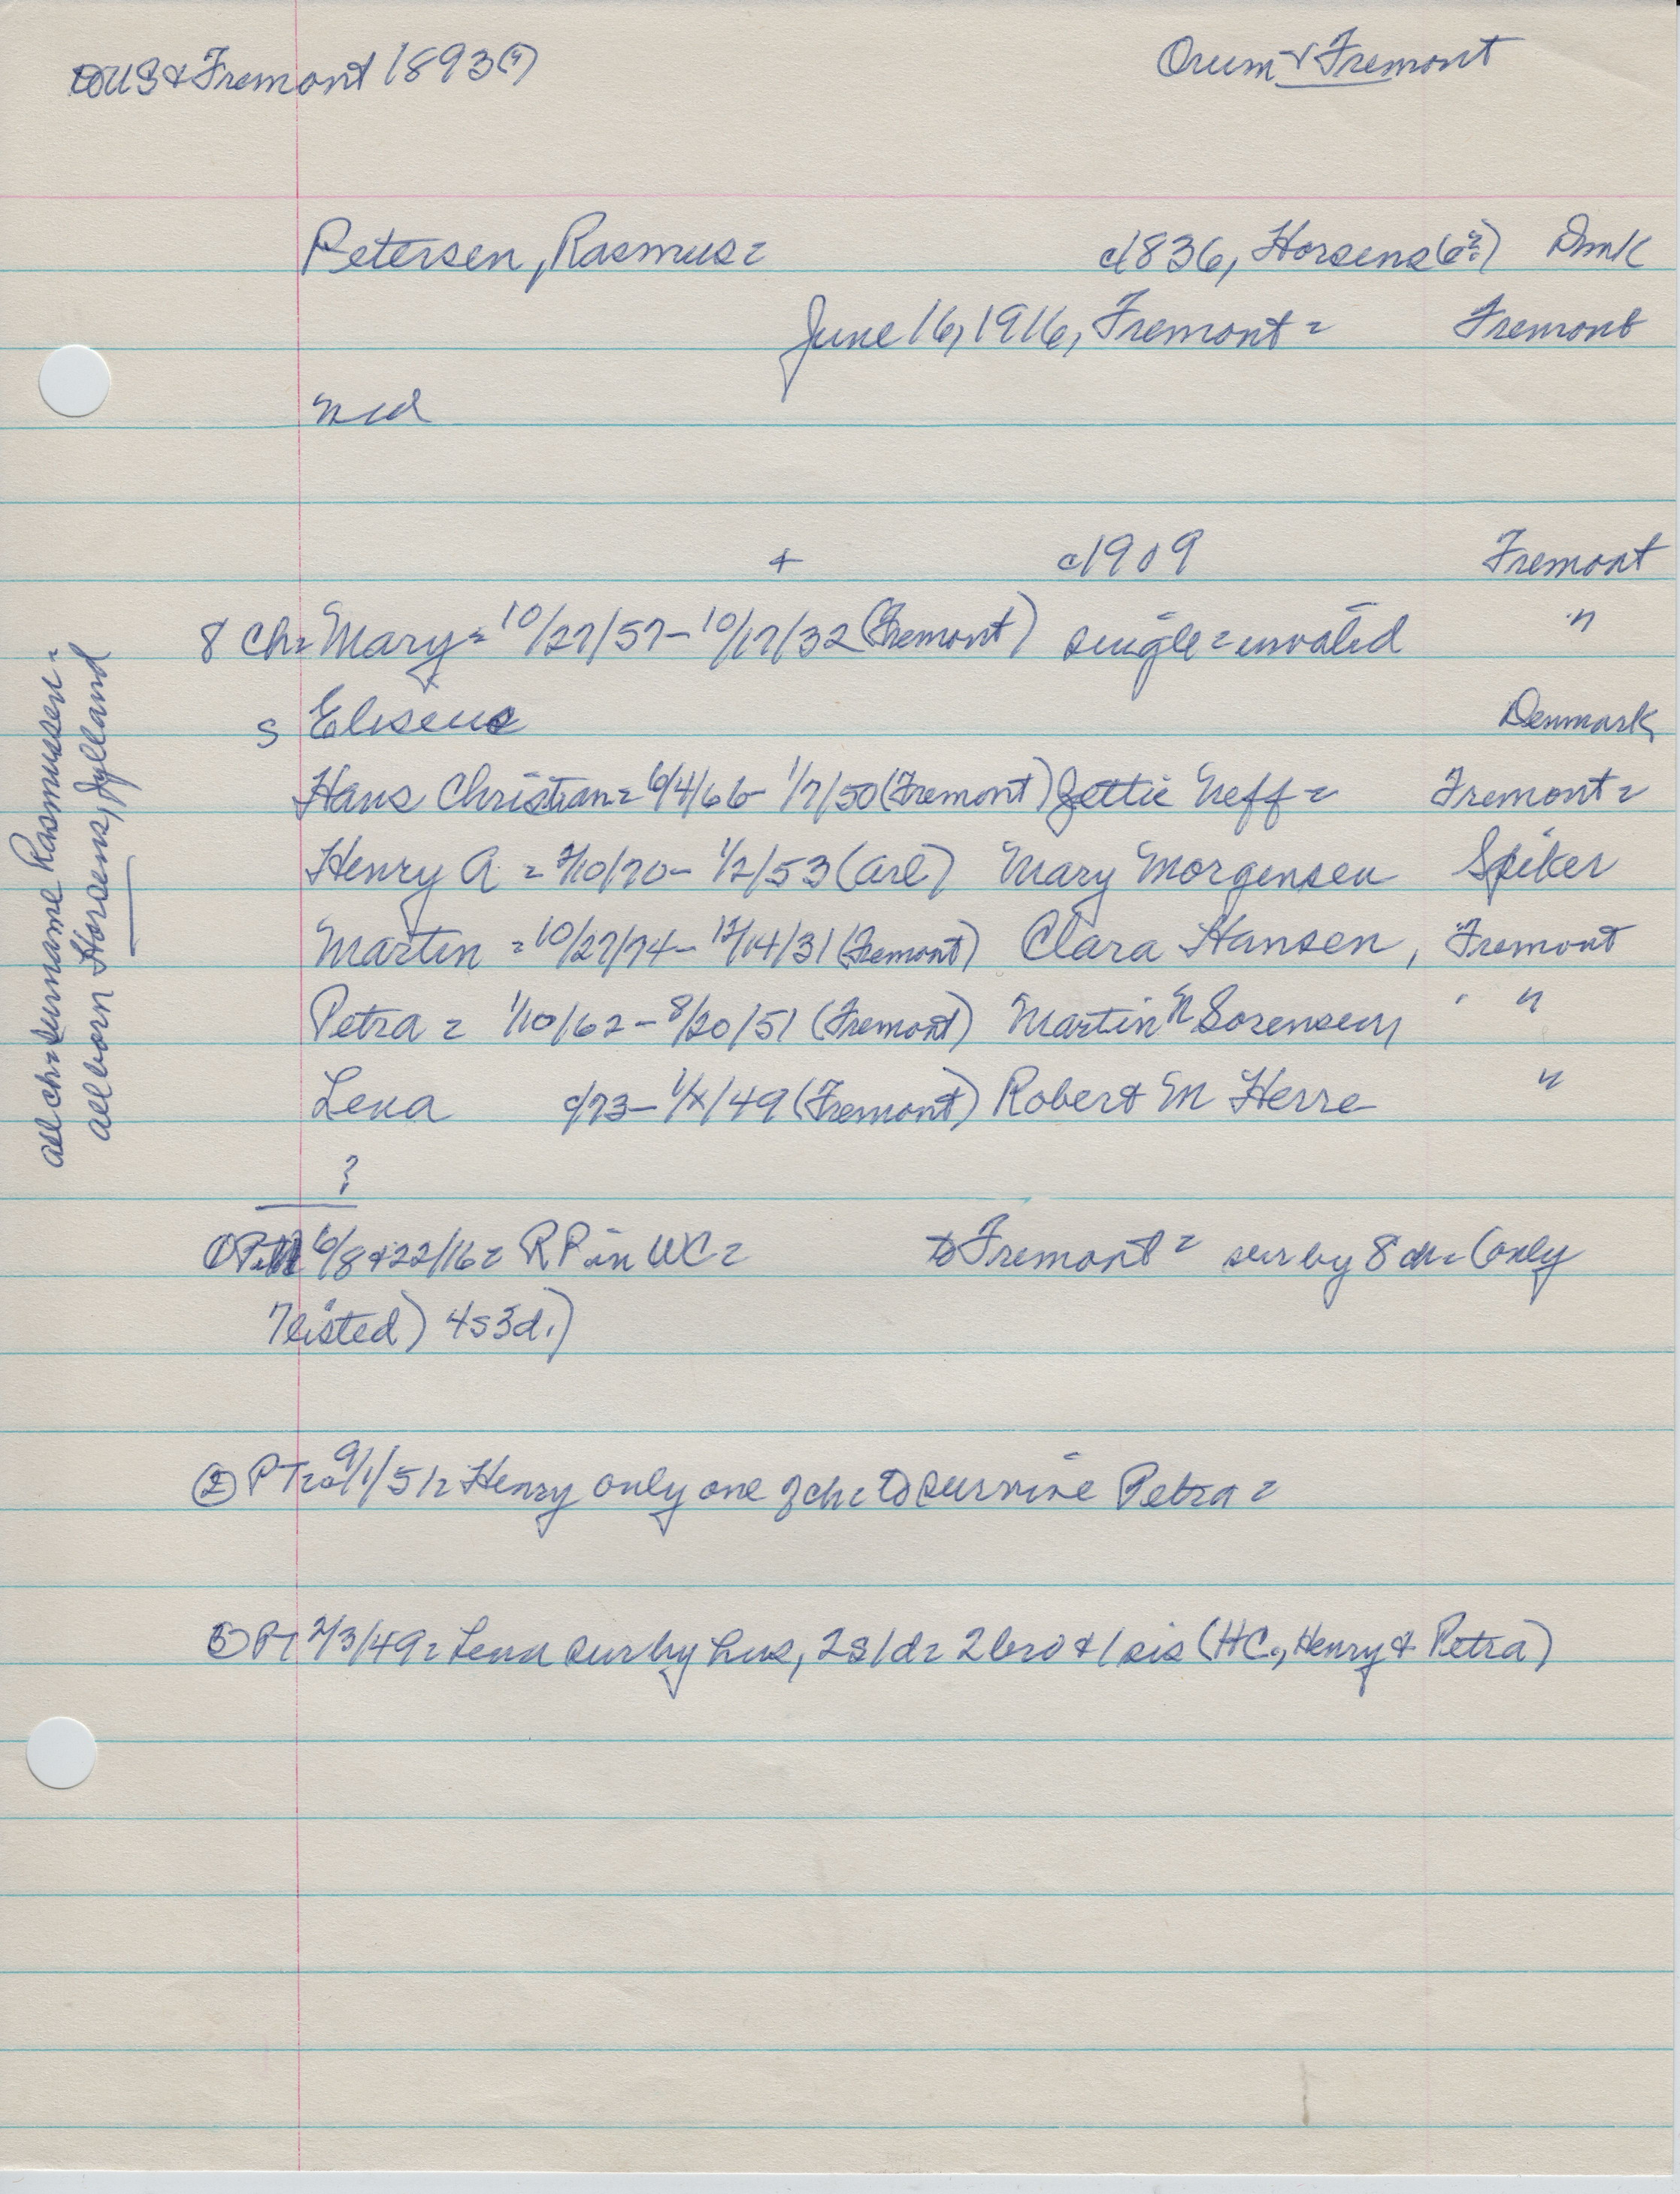 to US & Fremont 1893(?)
Orum & Fremont
Petersen, Rasmus =
c1836, Horsens(?) Dmk
June 16, 1916, Fremont = Fremont
md
+ c1909 Fremont
8 ch = Mary = 10/27/57 - 10/17/32 (Fremont) single = invalid "
s Eliseus Denmark
Hans Christian = 6/4/66 - 1/7/50 (Fremont) Jettie Neff = Fremont =
Henry A = 2/10/70 - 1/2/53 (Arl) Mary Morgensen Spiker
Martin = 10/27/74 - 12/14/31 (Fremont) Clara Hansen, Fremont
Petra = 1/10/62 - 8/20/51 (Fremont) Martin N Sorensen "
Lena c/73 - 1/x/49 (Fremont) Robert M Herre "
?
① 6/8 & 22/16 = RP in WC = to Fremont = sur by 8 ch = (only
7 listed) 4s 3d.)
② PT = 9/1/51 = Henry only one of ch = to survive Petra =
③ PT 2/3/49 = Lena sur by hus, 2s 1d = 2 bro & 1 sis (HC, Henry & Petra)
all ch = surname Rasmussen =
all born Horsens, Jylland